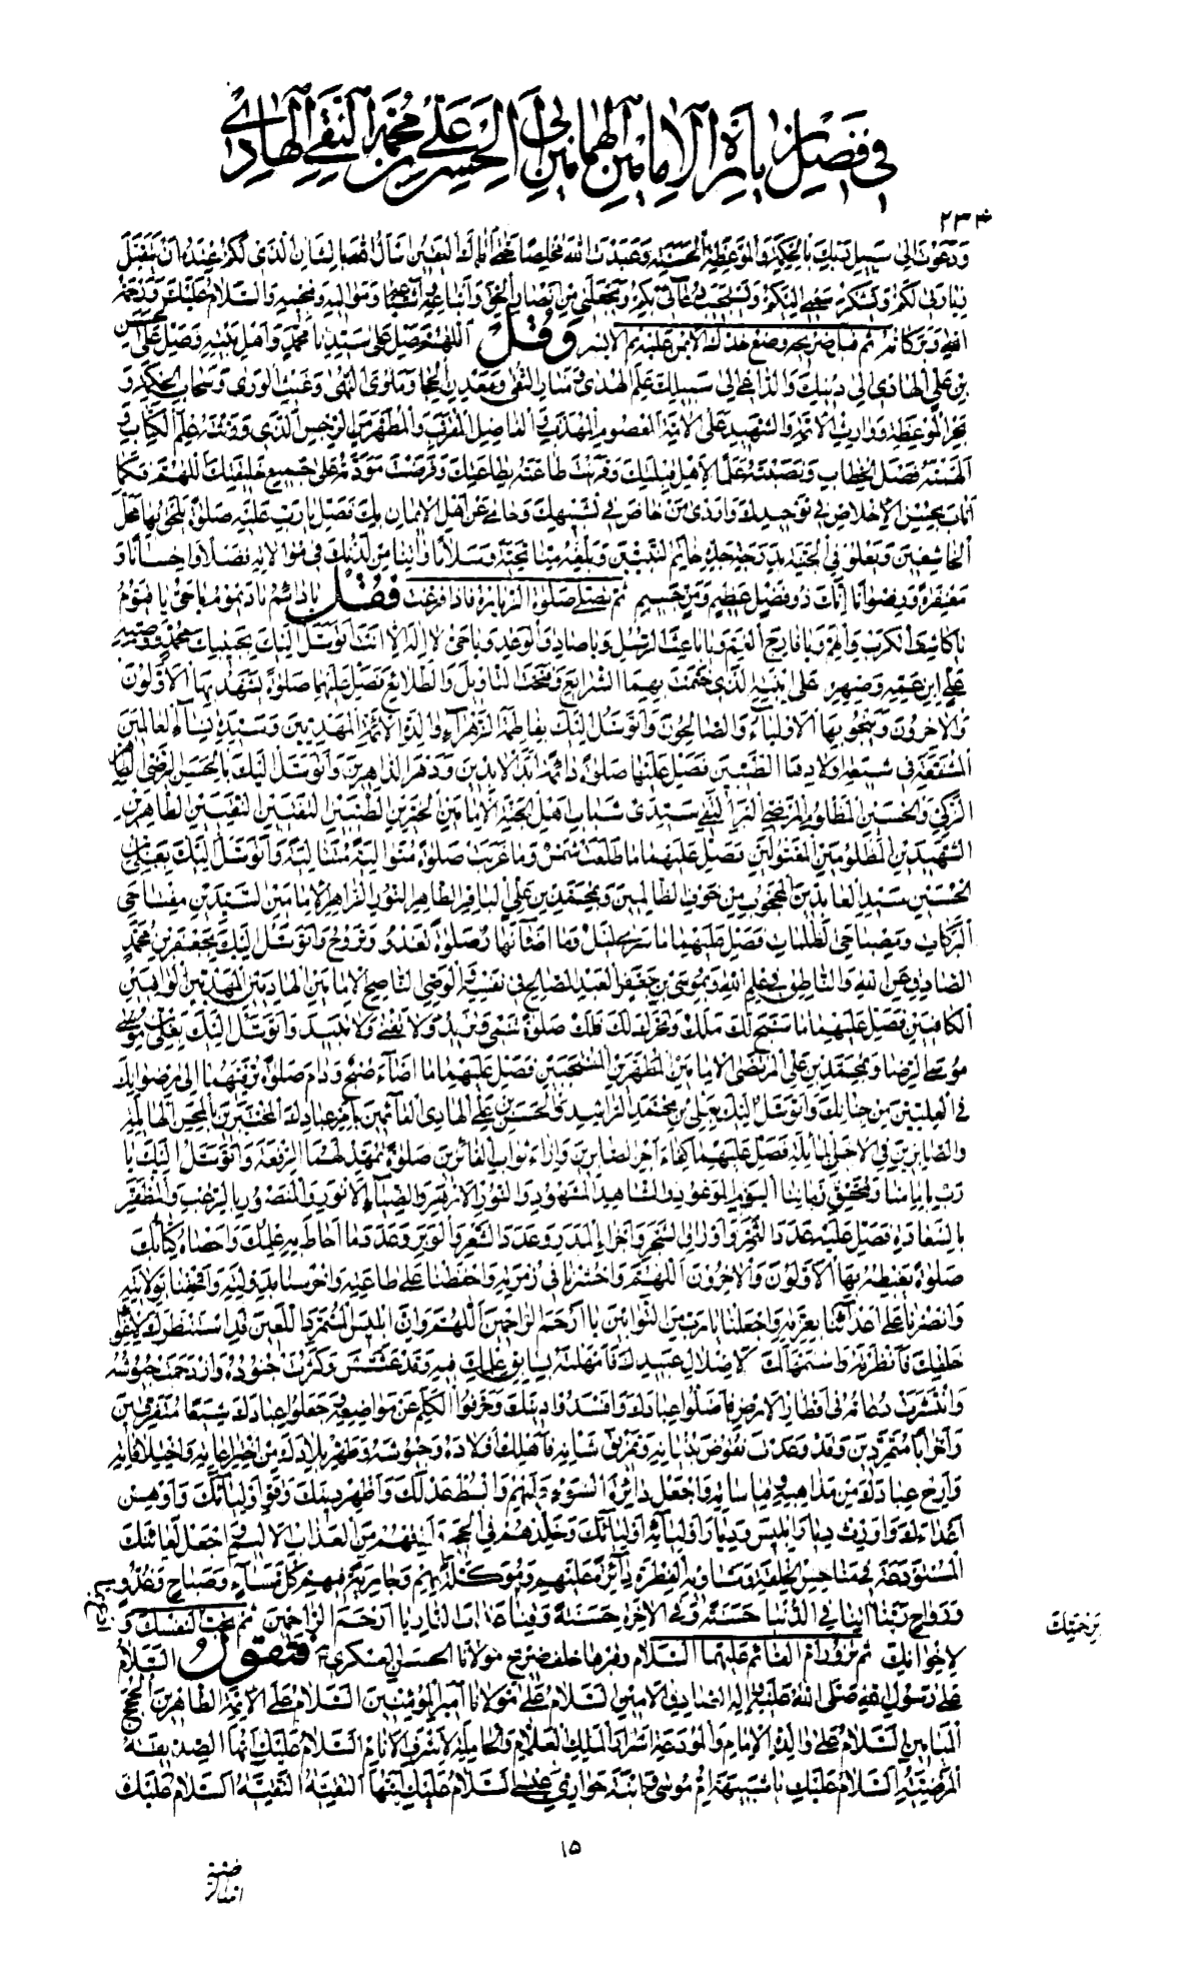 في فضل زيارة الامامين الهمامين ابي الحسن علي بن محمد النقي الهادي
٢٣٣
ودعوت الى سبيل ربك بالحكمة والموعظة الحسنة وعبدت الله مخلصا حتى اتاك اليقين اسأل الله بالشان الذي لكم عنده ان يتقبل
زيارتي لكم ويشكر سعيي اليكم ويستجيب دعائي بكم ويجعلني من انصار الحق واتباعه واشياعه ومواليه ومحبيه والسلام عليك ورحمة
الله وبركاته ثم قبل ضريحه وضع خدك الايمن عليه ثم الايسر وقل اللهم صل على سيدنا محمد واهل بيته وصل على الحسن
بن علي الهادي الى دينك والداعي الى سبيلك علم الهدى ومنار التقى ومعدن الحجى وماوى النهى وغيث الورى وسحاب الحكمة و
بحر الموعظة ووارث الائمة والشهيد على الامة المعصوم المهذب والفاضل المقرب والمطهر من الرجس الذي ورثته علم الكتاب و
الهمته فصل الخطاب ونصبته علما لاهل قبلتك وقرنت طاعته بطاعتك وفرضت مودته على جميع خليقتك اللهم فكما
اناب بحسن الاخلاص في توحيدك واردى من خاض في تشبيهك وحامى عن اهل الايمان بك فصل يا رب عليه صلوة يلحق بها محل
الخاشعين ويعلو في الجنة بدرجة جده خاتم النبيين وبلغه منا تحية وسلاما واتنا من لدنك في موالاته فضلا واحسانا و
مغفرة ورضوانا انك ذو فضل عظيم ومن جسيم ثم تصلي صلوة الزيارة فاذا فرغت فقل يا دائم يا ديموم يا حي يا قيوم
يا كاشف الكرب والهم ويا فارج الغم ويا باعث الرسل ويا صادق الوعد ويا حي لا اله الا انت اتوسل اليك بحبيبك محمد ووصيه
علي ابن عمه وصهره على ابنته الذي ختمت بهما الشرايع وفتحت التاويل والطلائع فصل عليهما صلوة يشهد بها الاولون
والاخرون وينجو بها الاولياء والصالحون واتوسل اليك بفاطمة الزهراء والدة الائمة المهديين وسيدة نساء العالمين
المشفعة في شيعة اولادها الطيبين فصل عليها صلوة دائمة ابد الابدين ودهر الداهرين واتوسل اليك بالحسن الرضي الطاهر
الزكي والحسين المظلوم المرضي البر التقي سيدي شباب اهل الجنة الامامين الخيرين الطيبين التقيين النقيين الطاهرين
الشهيدين المظلومين المقتولين فصل عليهما ما طلعت شمس وما غربت صلوة متوالية متتالية واتوسل اليك بعلي بن
الحسين سيد العابدين المحجوب من خوف الظالمين وبمحمد بن علي الباقر الطاهر النور الزاهر الامامين السيدين مفتاحي
البركات ومصباحي الظلمات فصل عليهما ما سرى ليل وما اضاء نهار صلوة تغدو وتروح واتوسل اليك بجعفر بن محمد
الصادق عن الله والناطق في علم الله وبموسى بن جعفر العبد الصالح في نفسه والوصي الناصح الامامين الهاديين المهديين الوافيين
الكافيين فصل عليهما ما سبح لك ملك وتحرك لك فلك صلوة تنمى وتزيد ولا تفنى ولا تبيد واتوسل اليك بعلي بن
موسى الرضا وبمحمد بن علي المرتضى الامامين المطهرين المنتجبين فصل عليهما ما اضاء صبح ودام صلوة ترقيهما الى رضوانك
في العليين من جنانك واتوسل اليك بعلي بن محمد الراشد والحسن بن علي الهادي القائمين بامر عبادك المختبرين بالمحن الهائلة
والصابرين في الاحن المائلة فصل عليهما كفاء اجر الصابرين وازاء ثواب الفائزين صلوة تمهد لهما الرفعة واتوسل اليك يا
رب بامامنا ومحقق زماننا اليوم الموعود والشاهد المشهود والنور الازهر والضياء الانور والمنصور بالرعب والمظفر
بالسعادة فصل عليه عدد الثمر واوراق الشجر واجزاء المدر وعدد الشعر والوبر وعدد ما احاط به علمك واحصاه كتابك
صلوة يغبطه بها الاولون والاخرون اللهم واحشرنا في زمرته واحفظنا على طاعته واحرسنا بدولته واتحفنا بولايته
وانصرنا على اعدائنا بعزته واجعلنا يا رب من التوابين يا ارحم الراحمين اللهم وان ابليس المتمرد اللعين قد استنظرك لاغواء
خلقك فانظرته واستمهلك لاضلال عبيدك فامهلته بسابق علمك فيه وقد عشش وكثرت جنوده وازدحمت جيوشه
وانتشرت دعاته في اقطار الارض فاضلوا عبادك وافسدوا دينك وحرفوا الكلم عن مواضعه وجعلوا عبادك شيعا متفرقين
واحزابا متمردين وقد وعدت نقوض بنيانه وتمزيق شانه فاهلك اولاده وجيوشه وطهر بلادك من اختراعاته واختلافاته
وارح عبادك من مذاهبه وقياساته واجعل دائرة السوء عليهم وابسط عدلك واظهر دينك وقو اولياءك واوهن
اعداءك واورث ديار ابليس وديار اوليائه اولياءك وخلدهم في الجحيم واذقهم من العذاب الاليم واجعل لعائنك
المستودعة في مناحس الخلقة ومشاويه الفطرة دائرة عليهم وموكلة بهم وجارية فيهم كل مساء وصباح وغدو
ورواح ربنا اتنا في الدنيا حسنة وفي الاخرة حسنة وقنا عذاب النار يا ارحم الراحمين ثم تحب لنفسك و
برحمتك
لاخوانك ثم تزور ام القائم عليهما السلام وقبرها خلف ضريح مولانا الحسن العسكري فتقول السلام
على رسول الله صلى الله عليه واله الصادق الامين السلام على مولانا امير المؤمنين السلام على الائمة الطاهرين الحجج
الميامين السلام على والدة الامام والمودعة اسرار الملك العلام والحاملة لاشرف الانام السلام عليك ايتها الصديقة
المرضية السلام عليك يا شبيهة ام موسى وابنة حواري عيسى السلام عليك ايتها التقية النقية السلام عليك
١٥